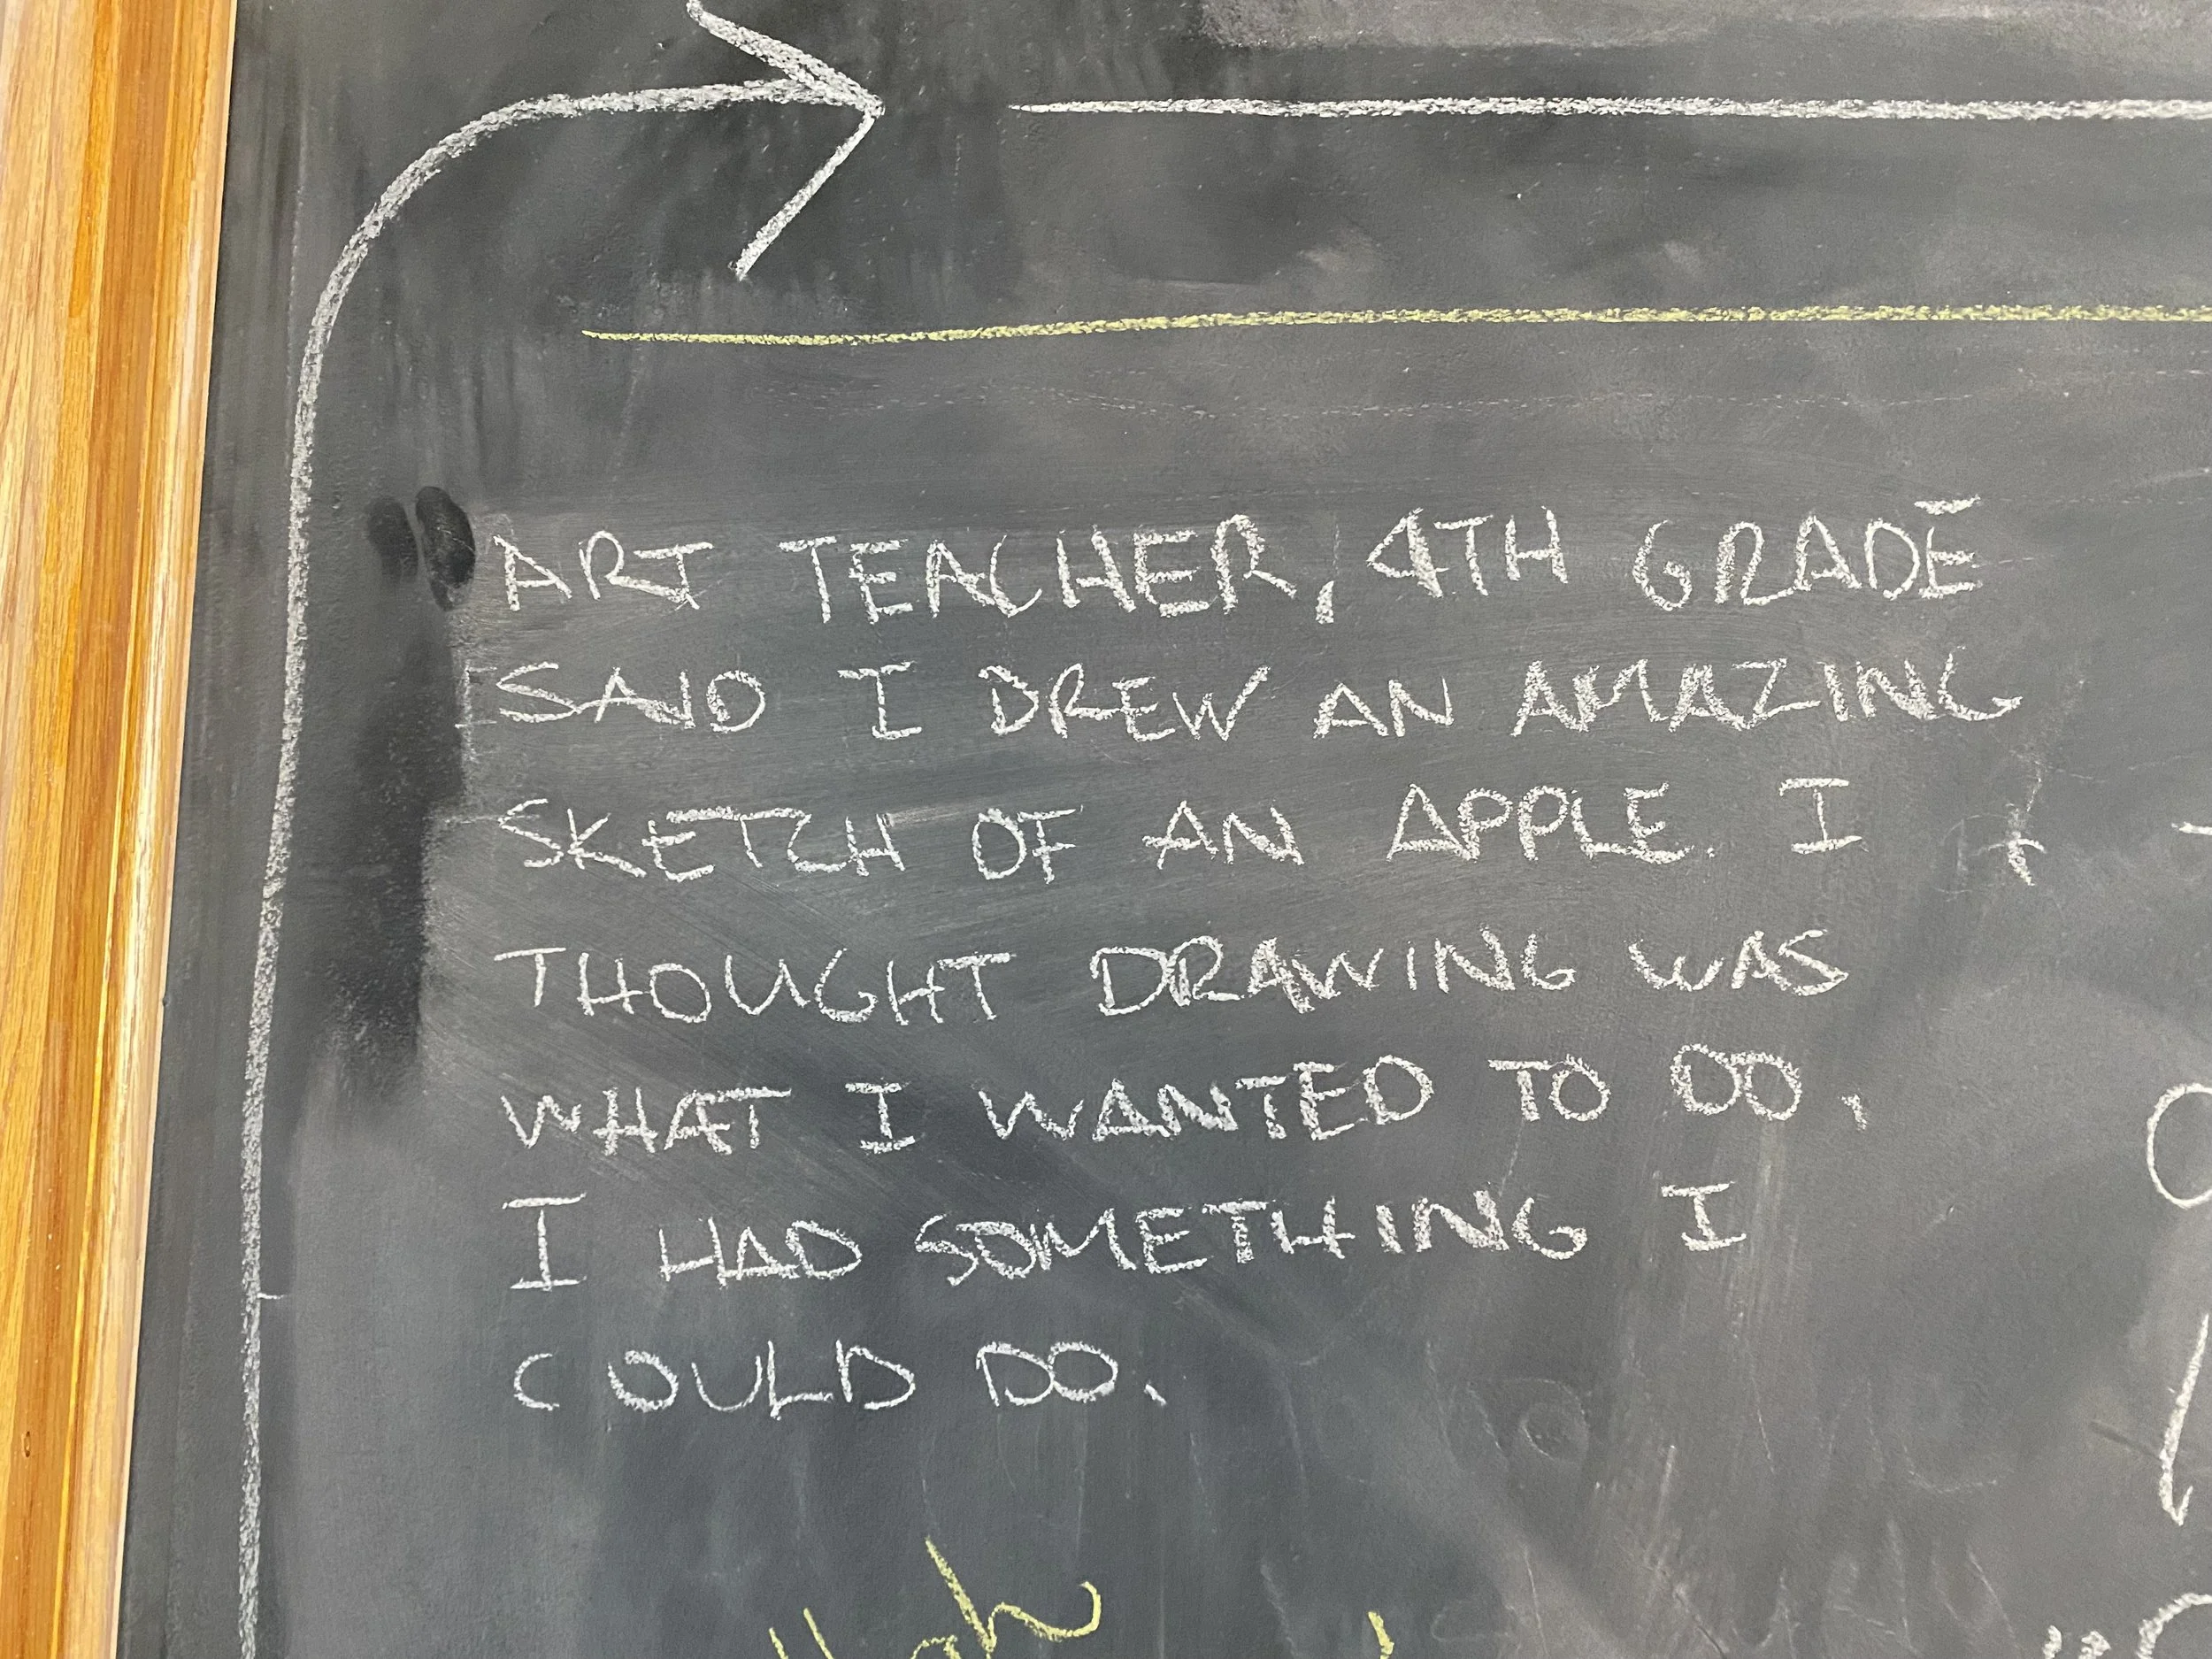 ART TEACHER, 4TH GRADE
SAID I DREW AN AMAZING
SKETCH OF AN APPLE. I
THOUGHT DRAWING WAS
WHAT I WANTED TO DO.
I HAD SOMETHING I
COULD DO.